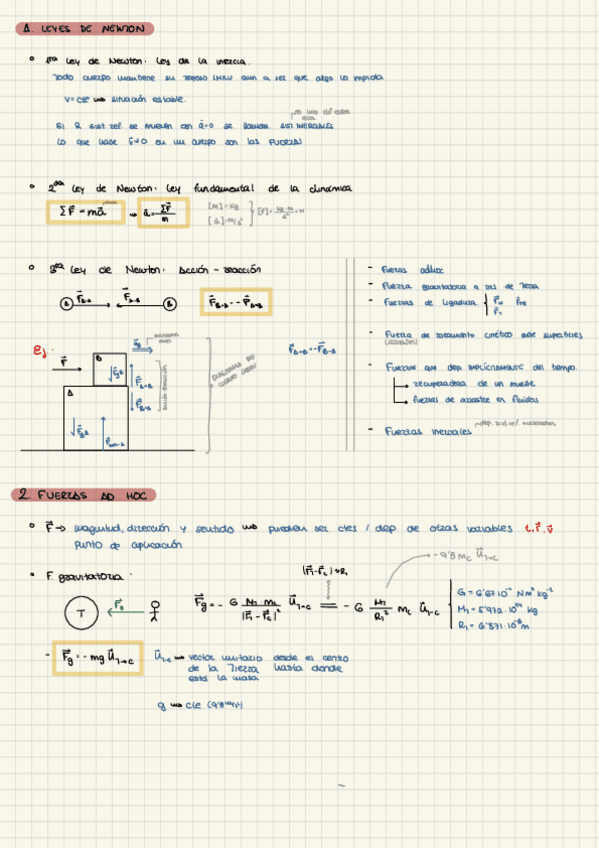 1. LEYES DE NEWTON
1ra Ley de Newton: Ley de la inercia.
Todo cuerpo mantiene su reposo / MRU aun a ser que algo lo impida
v = cte → situación estable.
Si 2 sist. ref. se mueven con a⃗=0 se llaman SIST. INERCIALES
Lo que hace v⃗≠0 en un cuerpo son las FUERZAS
2da Ley de Newton: Ley fundamental de la dinámica
ΣF⃗ = ma⃗ → a⃗ = ΣF⃗/m
[m] = kg
[a] = m/s²
[F] = kg·m/s² = N
3ra Ley de Newton: Acción - reacción
A F⃗B→A F⃗A→B B
F⃗B→A = - F⃗A→B
Ej:
F⃗
B
A
F⃗g B
F⃗A→B
F⃗B→A
F⃗g A
DIAGRAMA DE CUERPO LIBRE
F⃗A→B = - F⃗B→A
- Fuerzas adhoc
- Fuerza gravitatoria a ras de Tierra
- Fuerzas de ligadura
- Fuerza de rozamiento cinético entre superficies
- Fuerzas que dep. implícitamente del tiempo
recuperadora de un muelle
fuerzas de arrastre en fluidos
- Fuerzas inerciales
2. FUERZAS AD HOC
F⃗ → magnitud, dirección y sentido → pueden ser ctes / dep. de otras variables t, r⃗, v⃗
punto de aplicación
F. gravitatoria:
T F⃗g
F⃗g = - G MT·mc / |r⃗T - r⃗c|² u⃗T→c = - G MT / RT² mc u⃗T→c
|r⃗T - r⃗c| ≈ RT
- 9'8 mc u⃗T→c
G = 6'67·10⁻¹¹ N m² kg⁻²
MT = 5'972·10²⁴ kg
- F⃗g = - mg u⃗T→c
u⃗T→c → vector unitario desde el centro
de la Tierra hasta donde
está la masa
g → cte